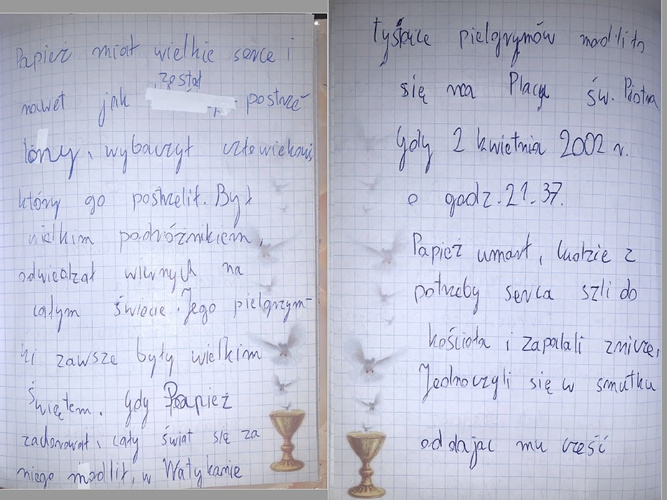 Papież miał wielkie serce i
nawet jak został postrze-
lony, wybaczył człowiekowi
który go postrzelił. Był
wielkim podróżnikiem,
odwiedzał wiernych na
całym świecie. Jego pielgrzym-
ki zawsze były wielkim
Świętem. Gdy Papież
zachorował, cały świat się za
niego modlił, w Watykanie
tysiące pielgrzymów modliło
się na Placu św. Piotra
Gdy 2 kwietnia 2002 r.
o godz. 21.37.
Papież umarł, ludzie z
potrzeby serca szli do
kościoła i zapalali znicze,
Jednoczyli się w smutku
oddając mu cześć